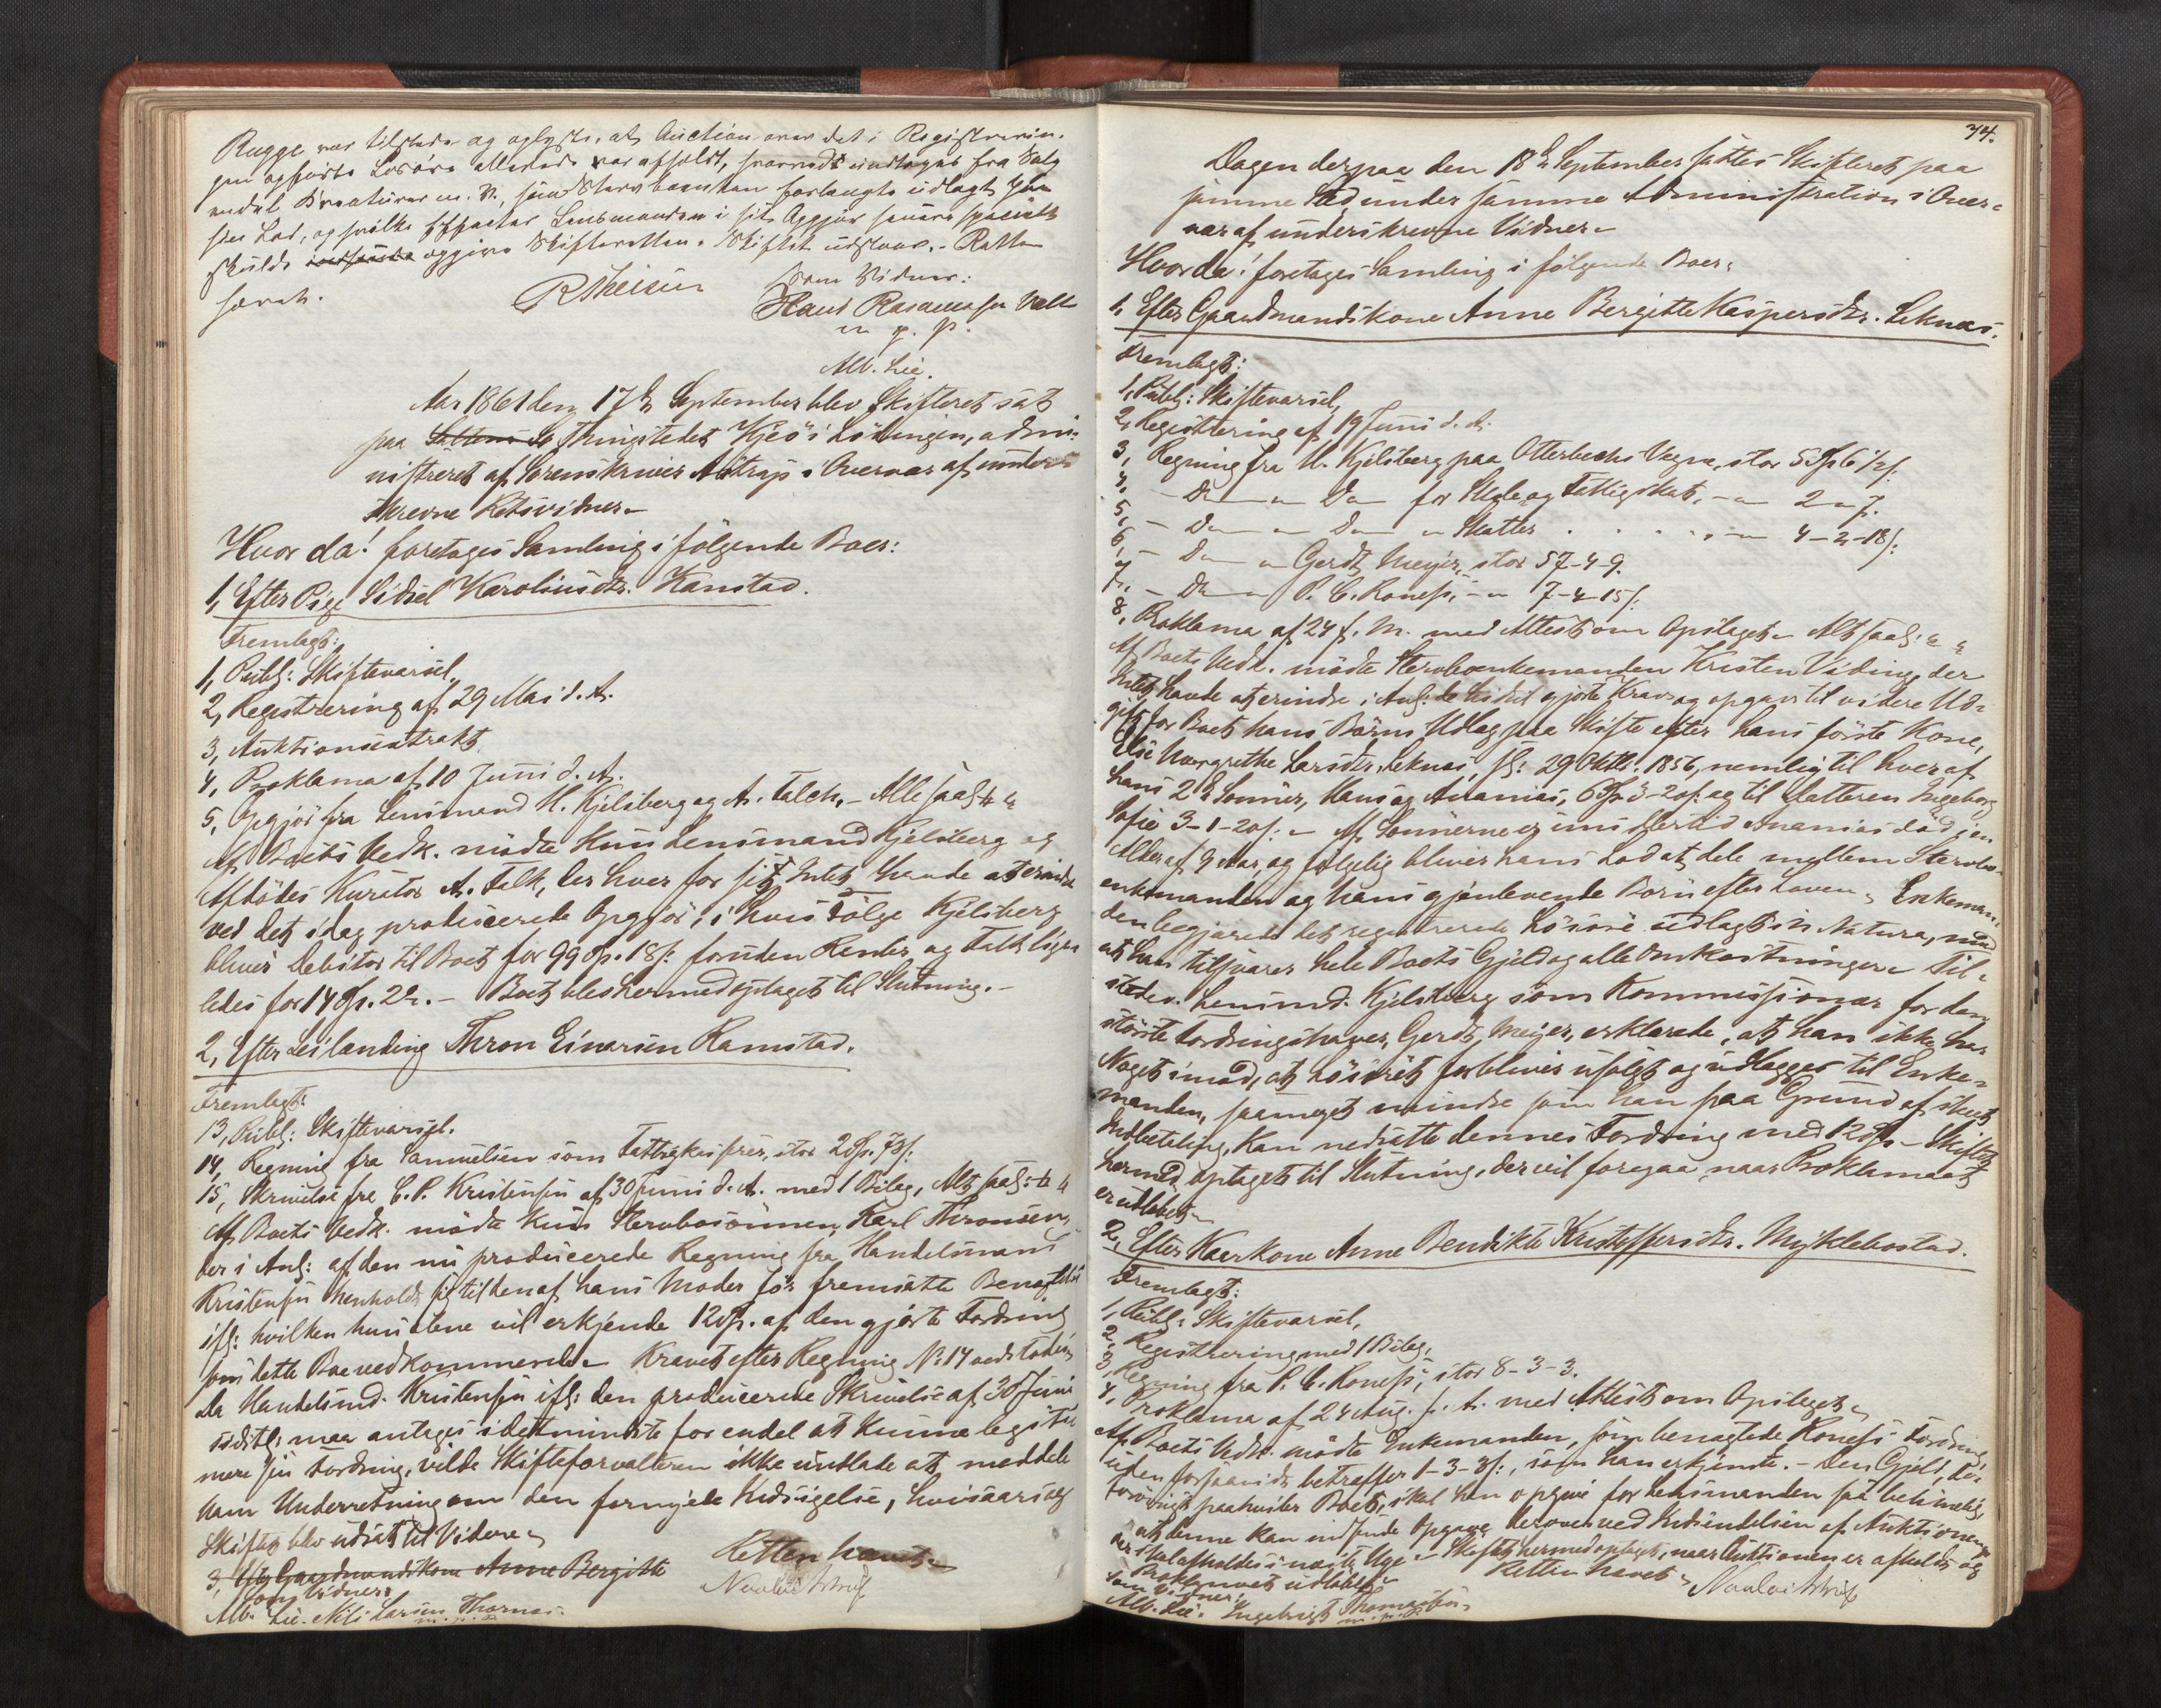 Rugge var tilstede og oplyste, at Auction over det i Registrerin-
gen opførte Løsøre allerede var afholdt, hvorved undtoges fra Salg
endel Kreaturer m. V., som Stervboenken forlangte udlagt paa
sin Lod, og hvilke Effecter Lensmanden i sit Opgjør senere specielt
skulde indsende opgive Skifteretten. Skiftet udstaar. - Retten
hævet.
RTheisen
Som Vidner:
Hans Rasmussen
m. p. P.
Alb. Lie.
Aar 1861 den 17de September blev Skifteret sat
paa Thingstedet Kjeø i Lødingen, admi-
nistreret af Sorenskriver Astrup i Overvær af under-
skrevne Retsvidner. -
Hvor da! foretoges Samling i følgende Boer:
1, Efter Pige Sidsel Karoliusdtr. Kanstad.
Fremlagt:
1, Publ: Skiftevarsel,
2, Registrering af 29 Mai d. A.
3, Auktionsextrakt,
4, Proklama af 10 Juni d. A.
5, Opgjør fra Lensmand H. Kjelsberg og A. Falch, - Alle saal:
Af Boets Vedk. mødte kun Lensmand Kjelsberg og
Afdødes Kurator A. Falk, der hver for sig Intet havde at erindre
ved det idag producerede Opgjør, i hvis Følge Kjelsberg
bliver Debitor til Boet for 99 Sp. 18 s: foruden Renter og Falk lige-
ledes for 14 Sp. 2 - Boet blev hermed optaget til Slutning. -
2, Efter Leilænding Thron Einarsen Ramstad.
Fremlagt:
13, Publ: Skiftevarsel.
14, Regning fra Samuelsen som Fattigkasserer, stor 2 Sp. 78 s:
15, Skrivelse fra C. P. Kristensen af 30 Juni d. A. med 1 Bilag, Alt saal:
Af Boets Vedk. mødte kun Stervbosønnen, Karl Thronsen,
der i Anl: af den nu producerede Regning fra Handelsmand
Kristensen henholdt sig til den af hans Moder før fremsatte Benægtelse
ifl: hvilken hun alene vil erkjende 12 Sp. af den gjorte Fordring
som dette Bo vedkommende. Kravet efter Regning No 14 vedstodes
Da Handelsmd. Kristensen ifl: den producerede Skrivelse af 30 Juni
sidstl: maa antages idetmindste for endel at kunne legiti-
mere sin Fordring, vilde Skifteforvalteren ikke undlade at meddele
ham Underretning om den fornyede Indsigelse, hvisaarsag
Skiftet blev udsat til Videre. -
3, Efter Gaardmandskone Anne Bergitte
Retten hævet. -
Som Vidner:
Nicolai Astrup
Alb. Lie. Nils Larsen Thornes
m. p. P.
74.
Dagen derpaa den 18de September sattes Skifteret paa
samme Sted, under samme Administration i Over-
vær af underskrevne Vidner. -
Hvor da! foretoges Samling i følgende Boer:
1, Efter Gaardmandskone Anne Bergitte Kaspersdtr. Leknæs.
Fremlagt:
1, Publ: Skiftevarsel,
2, Registrering af 19 Juni d. A.
3, Regning fra H. Kjelsberg paa Otterbechs Vegne, stor 5 Sp 6 1/2 s:
4, - Do - " Do - for Skole og Fattigskat, - " 2 - " 7.
5, - Do - " Do - " Skatter . . . . . - " 4 - 2 - 18 s:
6, - Do - " Gerdt Meyer, stor 57-4-9.
7, - Do - " P. C. Røness, - " 7-4-15 s:
8, Proklama af 24 f. M. med Attest om Opslaget. - Alt saal:
Af Boets Vedk. mødte Stervboenkemanden Kristen Viding, der
Intet havde at erindre i Anl: de hidtil gjorte Krav og opgav til videre Ud-
gift for Boet hans Børns Udlæg paa Skifte efter hans første Kone,
Else Margrethe Larsdtr. Leknæs, sl: 29 Oktbr: 1856, nemlig til hver af
hans 2de Sønner, Hans og Ananias, 6 Sp 3-2 s: og til Datteren Ingeborg
Sofie 3-1-20 s: - Af Sønnerne er imidlertid Ananias død i en
Alder af 9 Aar, og følgelig bliver hans Lod at dele mellem Stervbo-
enkemanden og hans gjenlevende Børn efter Loven. Enkeman-
den begjærede det registrerede Løsøre udlagt in Natura, mod
at han tilsvarer hele Boets Gjeld og alle Omkostninger. Til-
stedev. Lensmd. Kjelsberg som Kommissionær for den
største Fordringshaver, Gerdt Meyer, erklærede, at han ikke har
Noget imod, at Løsøret forbliver usolgt og udlægges til Enke-
manden, saameget mindre som han paa Grund af skeet
Indbetaling, kan nedsætte dennes Fordring med 12 Sp. - Skiftet
hermed optaget til Slutning, der vil foregaa, naar Proklamaet
er udløbet. -
2, Efter Kaarkone Anne Bendikte Kristoffersdtr. Myklebostad.
Fremlagt:
1, Publ: Skiftevarsel,
2, Registrering med 1 Bilag,
3, Regning fra P. C. Røness, stor 8-3-3.
4, Proklama af 24 Aug. d. A. med Attest om Opslaget. -
Af Boets Vedk. mødte Enkemanden, som benægtede Røness Fordring
uden forsaavidt betræffer 1-3-8 s:, som han erkjendte. - Den Gjeld, der
forøvrigt paahviler Boet, skal han opgive for Lensmanden saa betimelig,
at denne kan indsende Opgave derover ved Indsendelsen af Auktionen,
der skal afholdes i næste Uge. - Skiftet hermed optaget, naar Auktionen er afholdt og
Proklamaet udløbet. -
Retten hævet. -
Som Vidner:
Nicolai Astrup
Alb. Lie. Ingebrigt Thomassen
m. p. P.